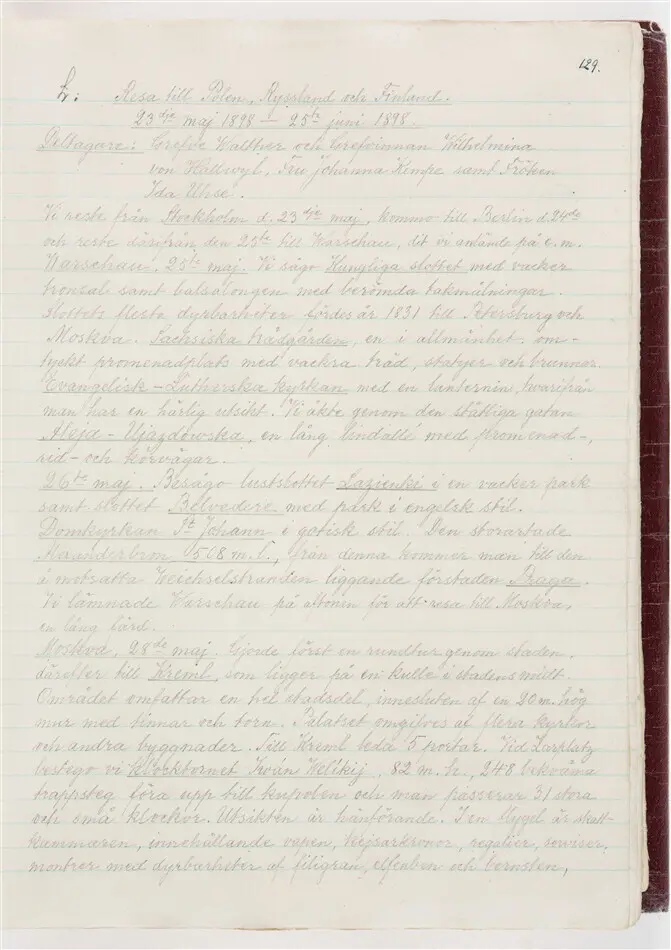 129.
L: Resa till Polen, Ryssland och Finland.
23dje maj 1898 – 25te juni 1898.
Deltagare: Grefve Walther och Grefvinnan Wilhelmina
von Hallwyl, Fru Johanna Kempe samt Fröken
Ida Uhse.
Vi reste från Stockholm d. 23dje maj, kommo till Berlin d. 24de
och reste därifrån den 25te till Warschau, dit vi anlände på e.m.
Warschau. 25te maj. Vi sågo Kungliga slottet med vacker
tronsal samt balsalongen med berömda takmålningar.
Slottets flesta dyrbarheter fördes år 1831 till Petersburg och
Moskva. Sachsiska trädgården, en i allmänhet om-
tyckt promenadplats med vackra träd, statyer och brunnar.
Evangelisk-Lutherska kyrkan med en lanternin, hvarifrån
man har en härlig utsikt. Vi åkte genom den ståtliga gatan
Aleja-Ujazdowska, en lång lindallé med promenad-,
rid- och körvägar.
26te maj. Besågo lustslottet Lazienki i en vacker park
samt slottet Belvedere med park i engelsk stil.
Domkyrkan St Johann i gotisk stil. Den storartade
508 m. l., från denna kommer man till den
å motsatta Weichselstranden liggande förstaden Praga.
Vi lämnade Warschau på aftonen för att resa till Moskva,
en lång färd.
Moskva, 28de maj. Gjorde först en rundtur genom staden,
därefter till Kreml, som ligger på en kulle i stadens midt.
Området omfattar en hel stadsdel, innesluten af en 20 m. hög
mur med tinnar och torn. Palatset omgifves af flera kyrkor
och andra byggnader. Till Kreml leda 5 portar. Vid Zarplatz
bestego vi klocktornet Iwán Welikij, 82 m. h., 248 bekväma
trappsteg föra upp till kupolen och man passerar 31 stora
och små klockor. Utsikten är hänförande. I en flygel är skatt-
kammaren, innehållande vapen, kejsarkronor, regalier, serviser,
montrer med dyrbarheter af filigran, elfenben och bernsten,